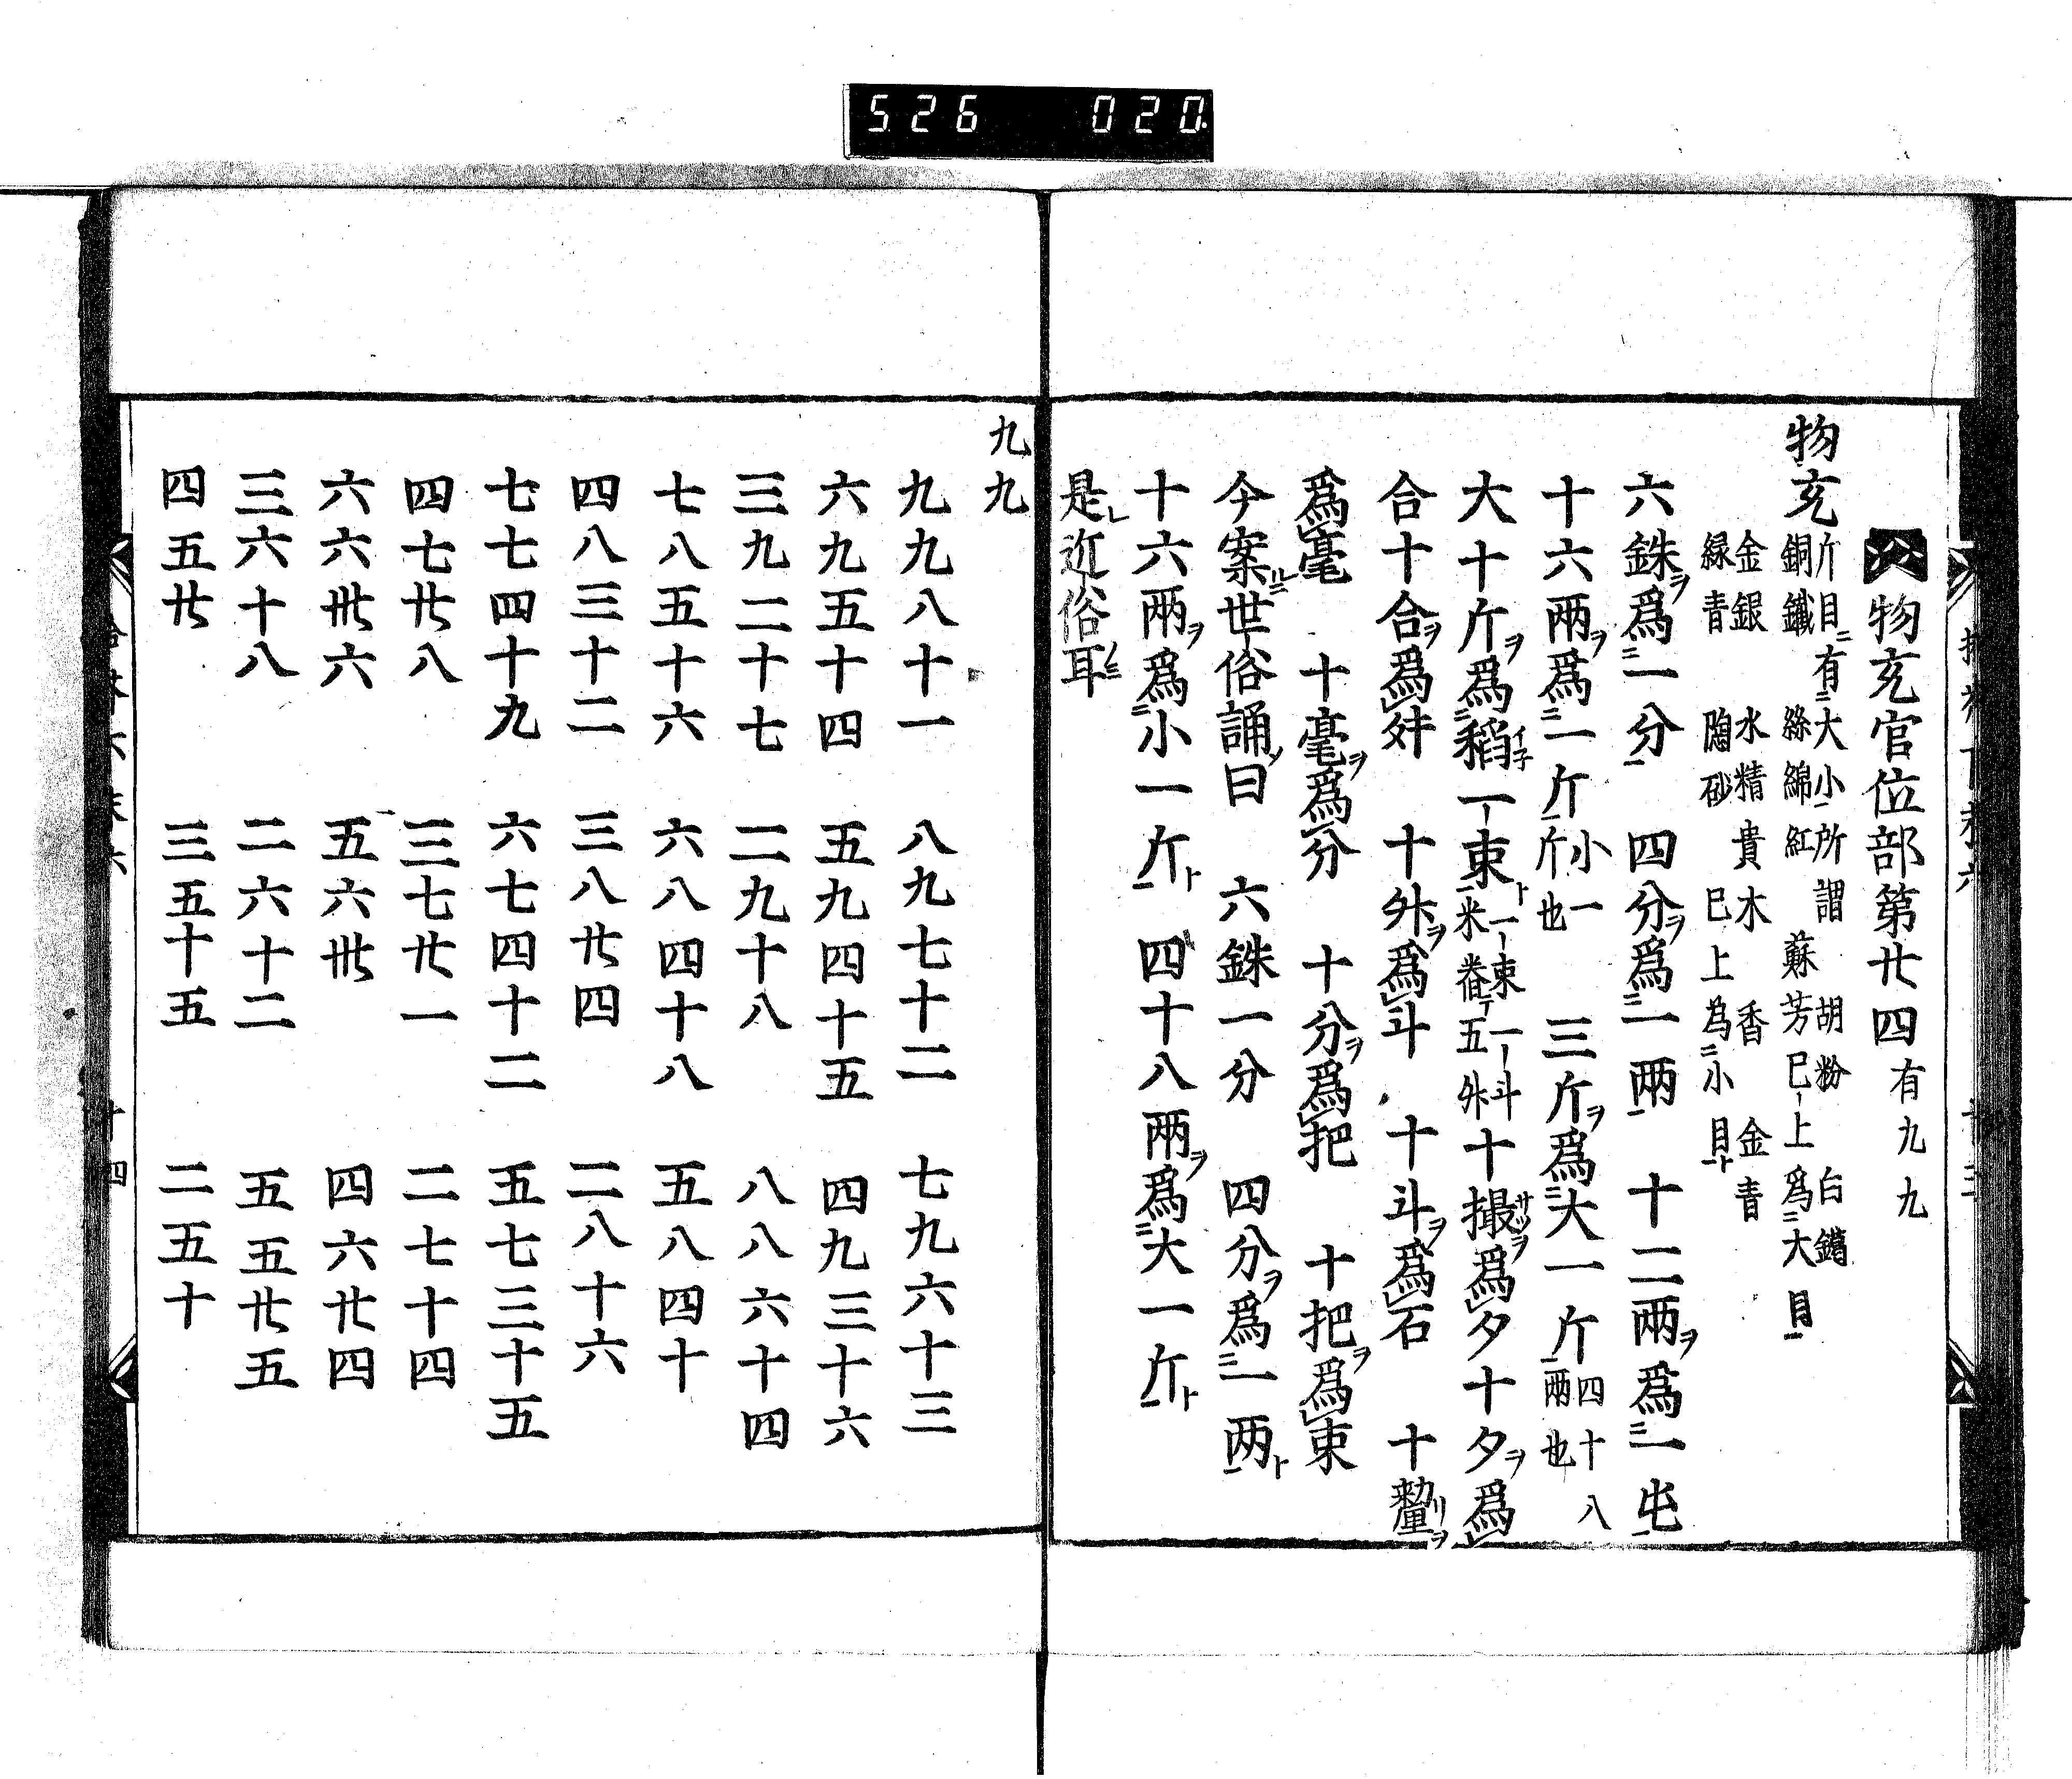 526 020
物充官位部第廿四 有九九
物充 斤目ニ有ニ大小一所謂 胡粉 白鑞
銅鐵 絲綿紅 蘇芳巳上爲ニ大目一
金銀 水精 貴木 香 金青
緑青 𥔎砂 巳上為ニ小目ト
六銖ヲ爲ニ一分一 四分ヲ爲ニ一兩一 十二兩ヲ爲ニ一屯一
十六兩ヲ爲ニ一斤一 小一斤也 三斤ヲ爲ニ大一斤一 四十八兩也
大十斤ヲ爲ニ稻イ子一束ト一 一束一斗米舂テ五升 十撮サツヲ爲レ夕 十夕ヲ爲レ
合 十合ヲ爲レ升 十升ヲ爲レ斗 十斗ヲ爲レ石 十釐リヲ
爲レ毫 十毫ヲ爲レ分 十分ヲ爲レ把 十把ヲ爲レ束
今案ルニ世俗誦ノ曰 六銖一分 四分ヲ爲ニ一两ト一
十六兩ヲ爲ニ小一斤ト一 四十八兩ヲ爲ニ大一斤ト一
是レ近俗ノミ耳
九九
九九八十一 八九七十二 七九六十三
六九五十四 五九四十五 四九三十六
三九二十七 二九十八 八八六十四
七八五十六 六八四十八 五八四十
四八三十二 三八廿四 二八十六
七七四十九 六七四十二 五七三十五
四七廿八 三七廿一 二七十四
六六卅六 五六卅 四六廿四
三六十八 二六十二 五五廿五
四五廿 三五十五 二五十